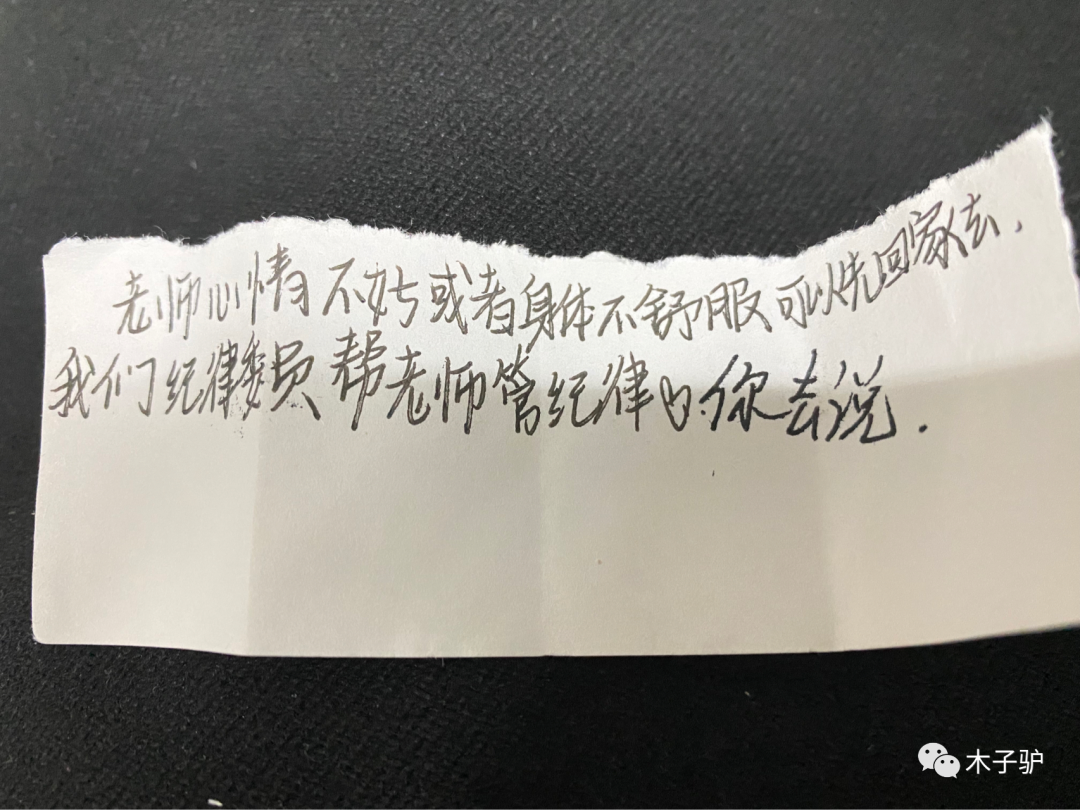 老师心情不好或者身体不舒服可以先回家去.
我们纪律委员帮老师管纪律.你去说.
木子驴